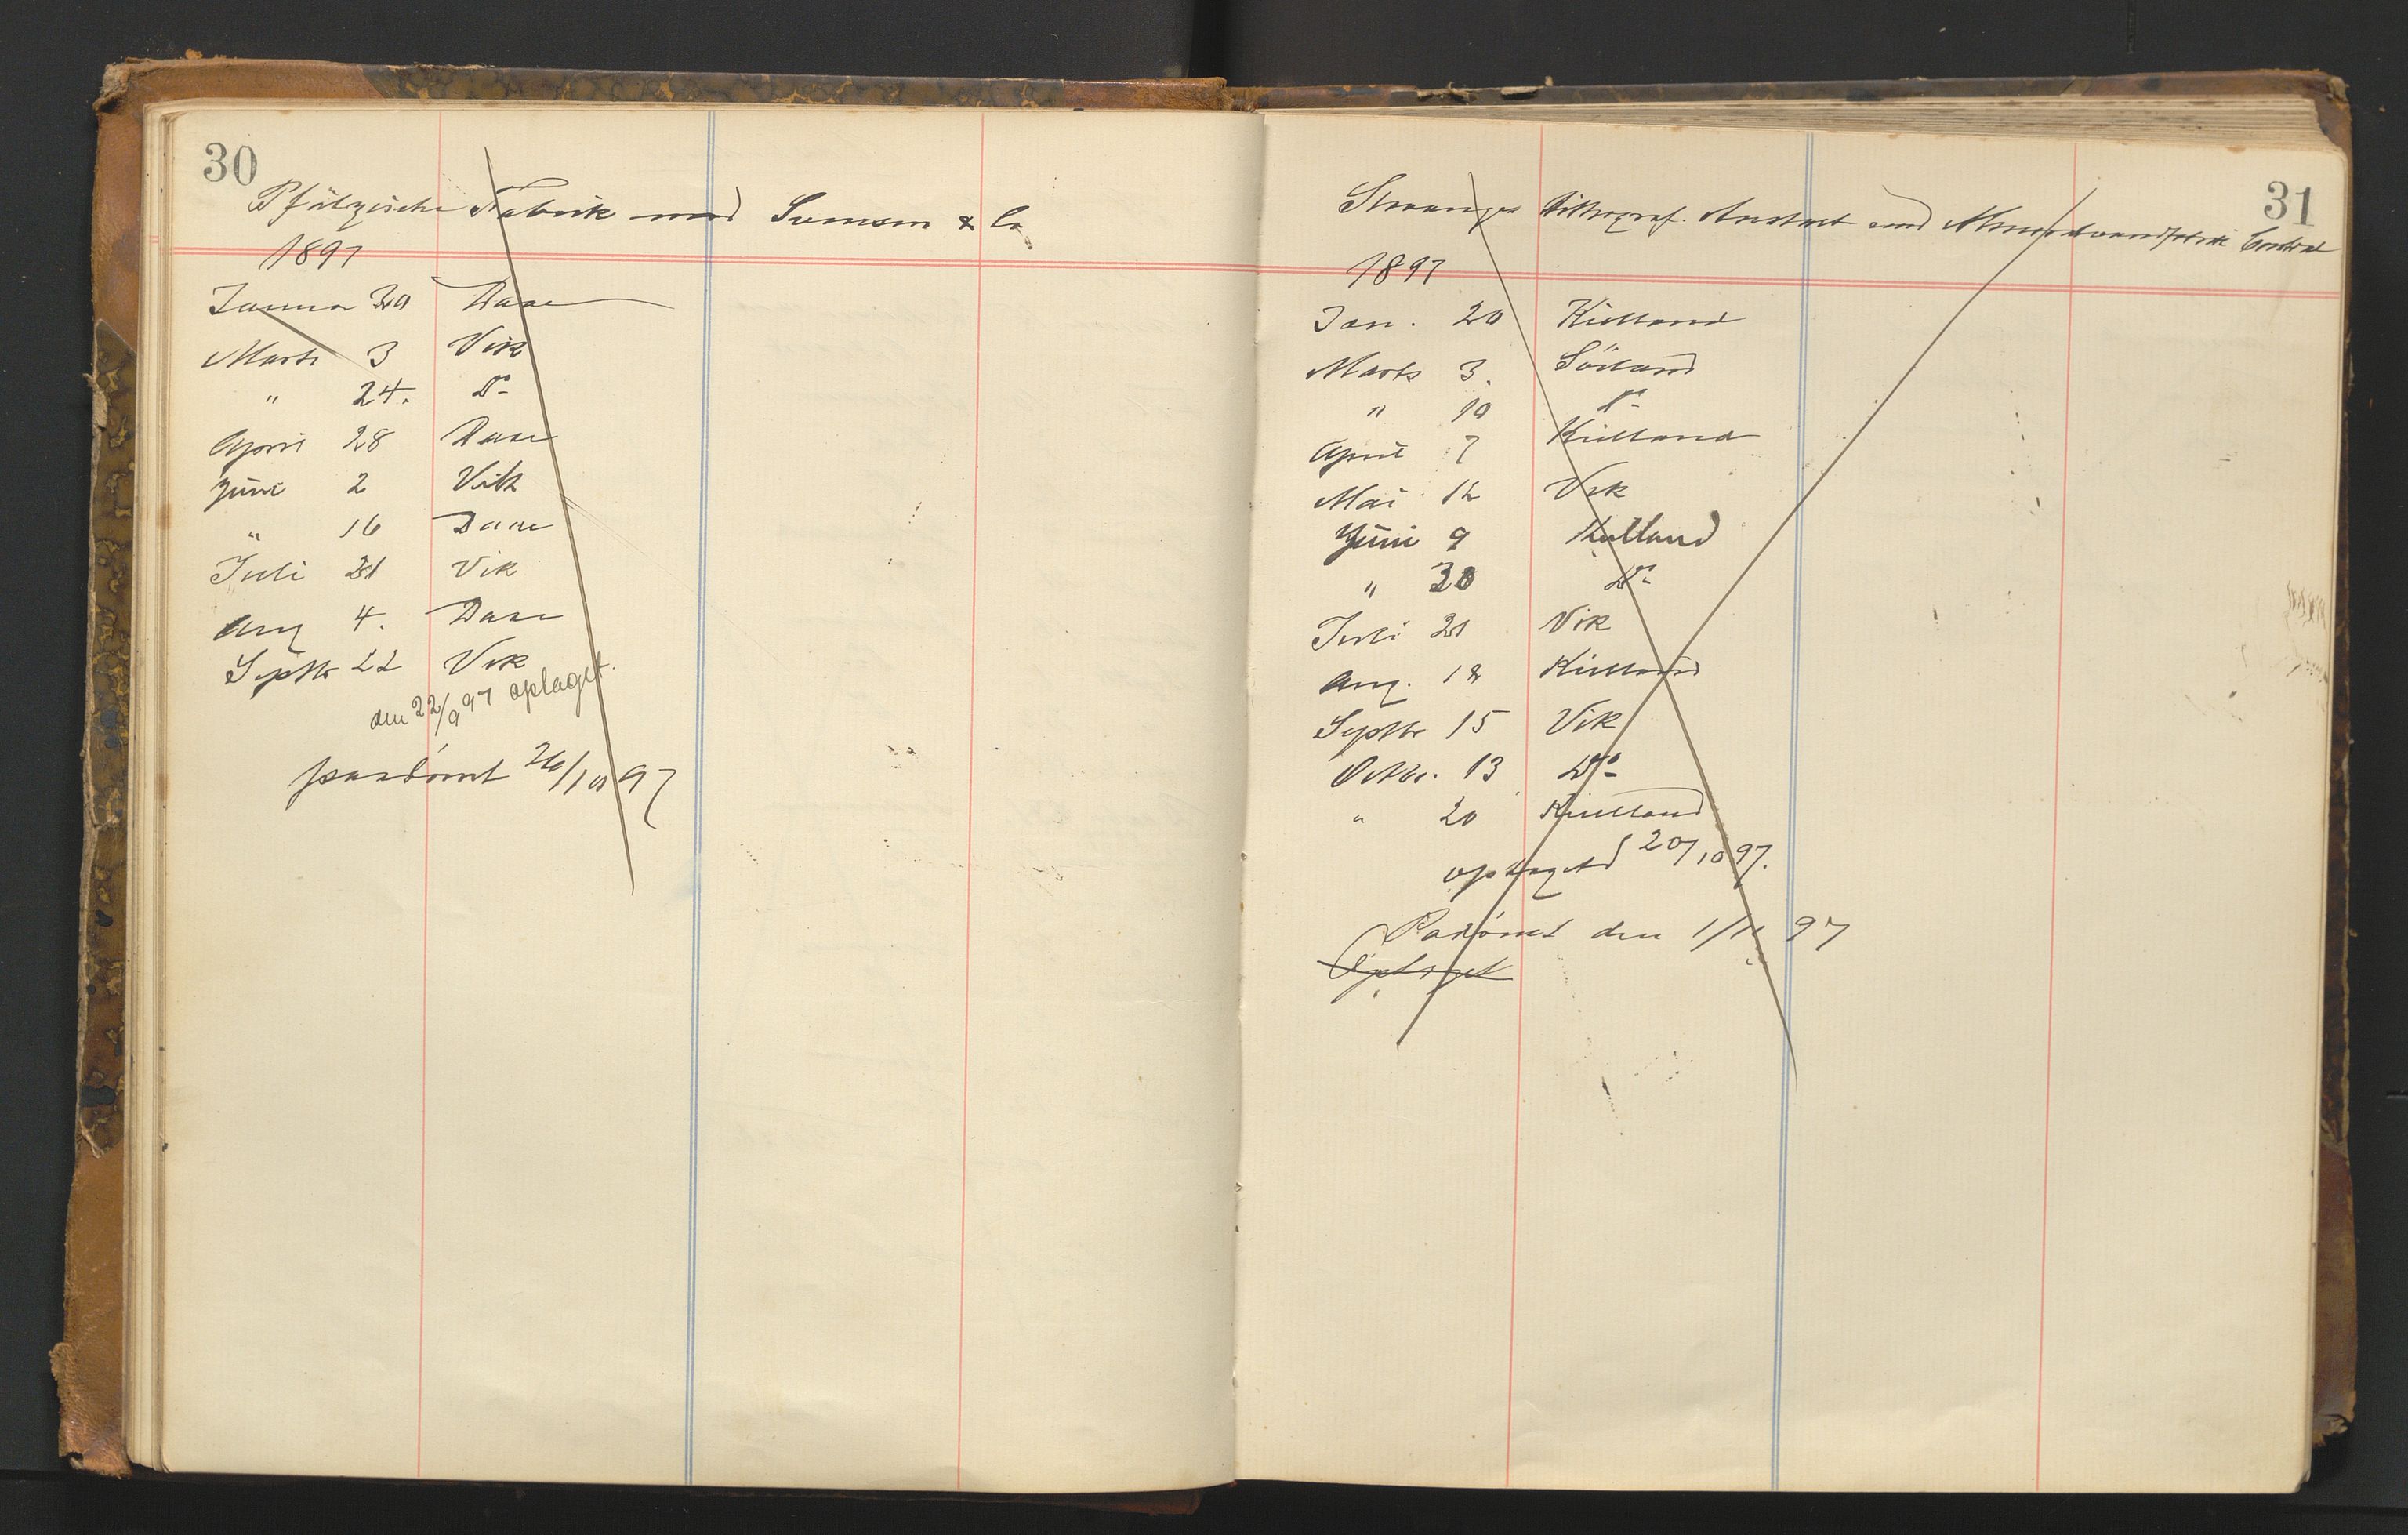 30
Pfälzische Fabrik mod Svenson & Co
1897
Januar 20 Daae
Marts 3 Vik
" 24. Do
April 28 Daae
Juni 2 Vik
" 16 Daae
Juli 21 Vik
Aug 4. Daae
Septbr 22 Vik
den 22/9 97 optaget.
paadømt 26/10 97
31
Stavanger Lithograf. Anstalt mod Mineralvandfabrik Central
1897
Jan. 20 Kielland
Marts 3. Sörland
" 10 Do
April 7 Kielland
Mai 12 Vik
Juni 9 Kielland
" 30 Do
Juli 21 Vik
Aug. 18 Kielland
Septbr 15 Vik
Octbr. 13 Do
" 20 Kielland
optaget 20/10 97.
Padömt den 1/11 97
Optaget